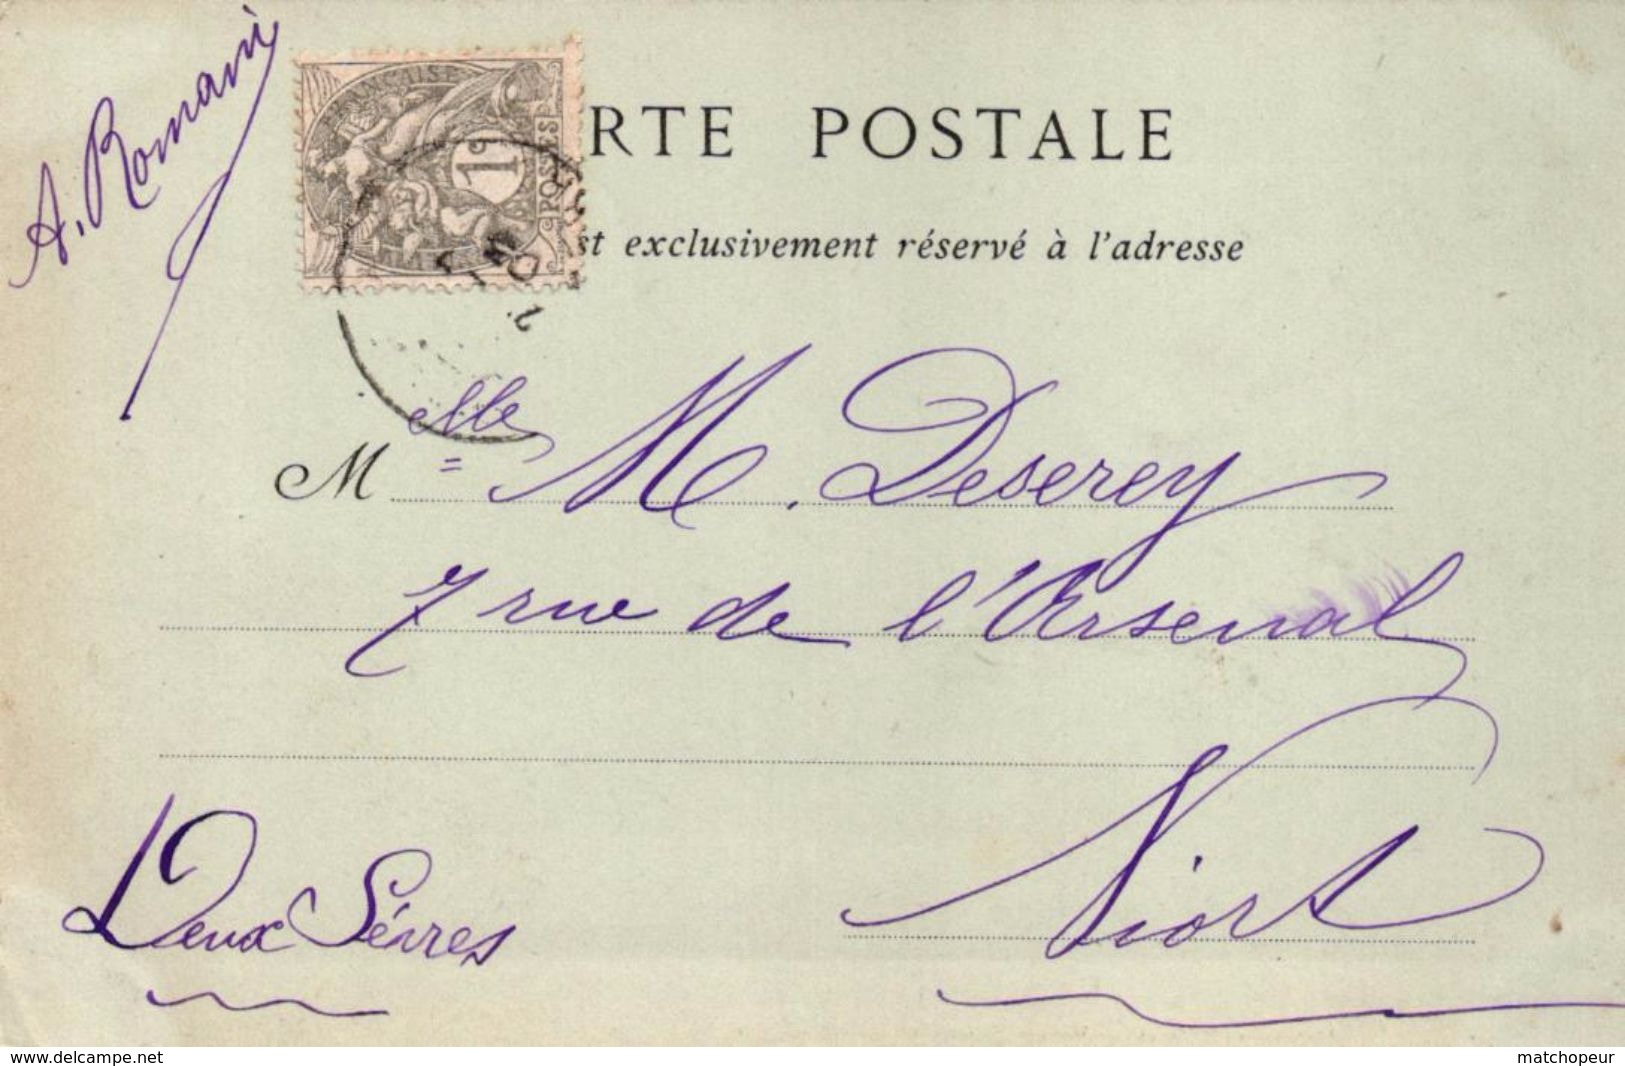 A. Romani
FRANÇAISE
1c
POSTES
RTE POSTALE
st exclusivement réservé à l'adresse
Melle M. Deserey
7 rue de l'Arsenal
Niort
Deux Sévres
www.delcampe.net
matchopeur